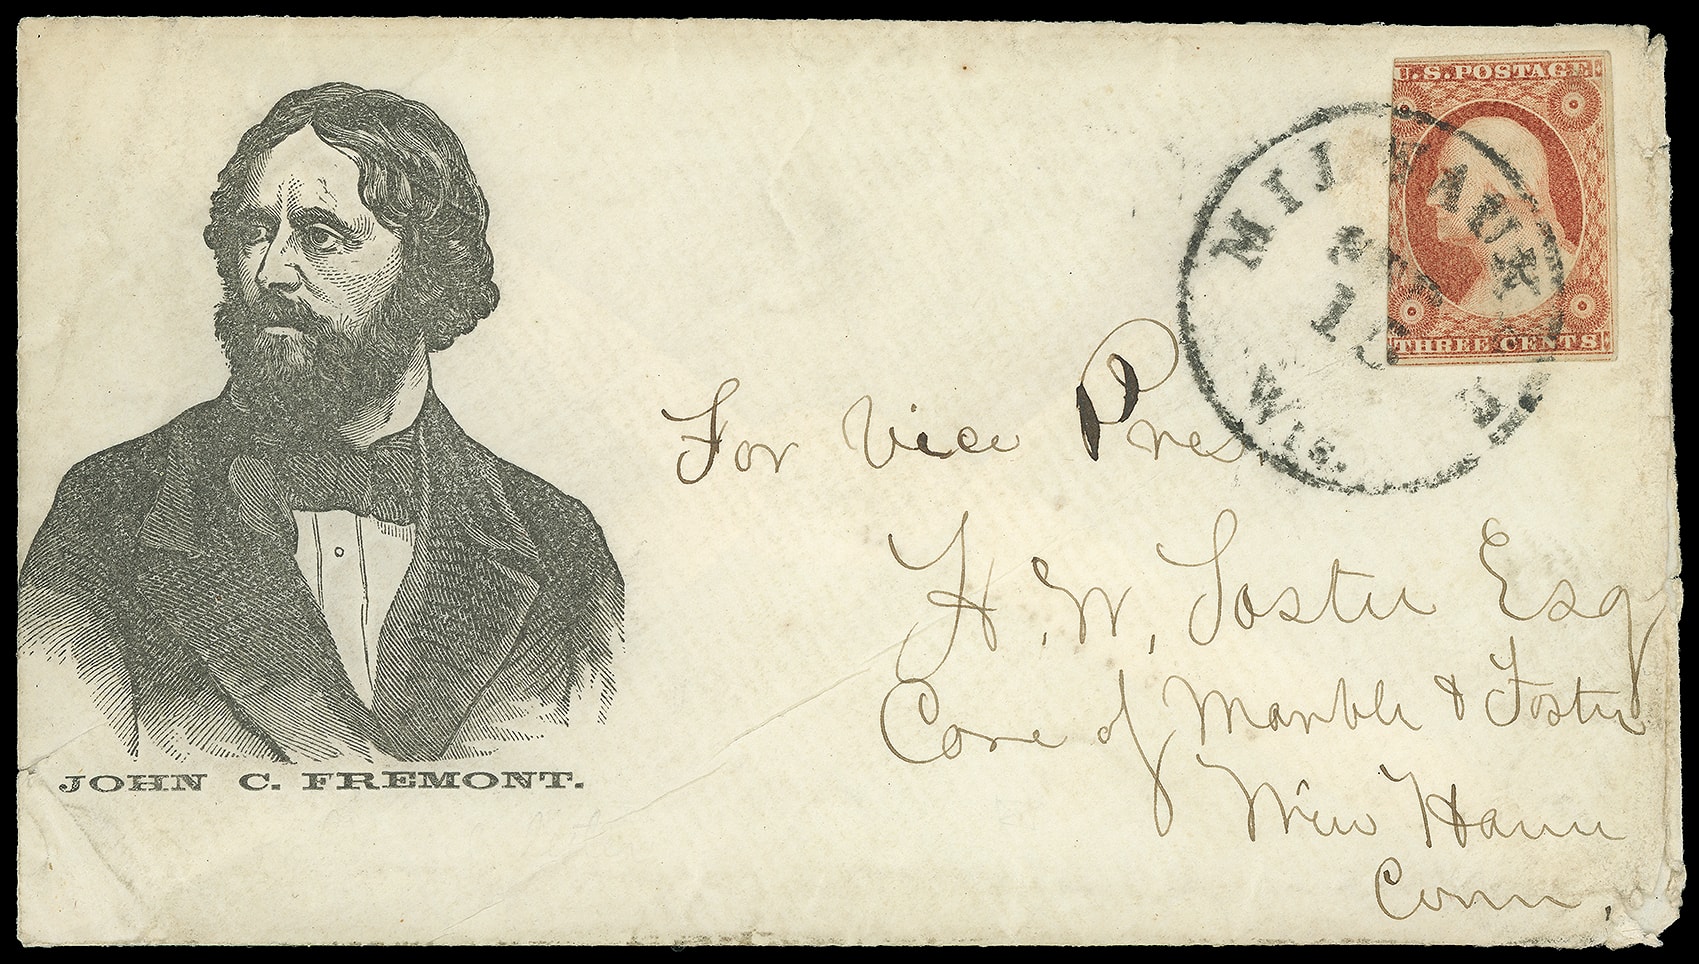 U.S. POSTAGE
THREE CENTS
MILWAUK
SEP
15
Wis.
JOHN C. FREMONT.
For Vice Pres
H. W. Foster Esq
Care of Marble & Foster
New Haven
Conn.